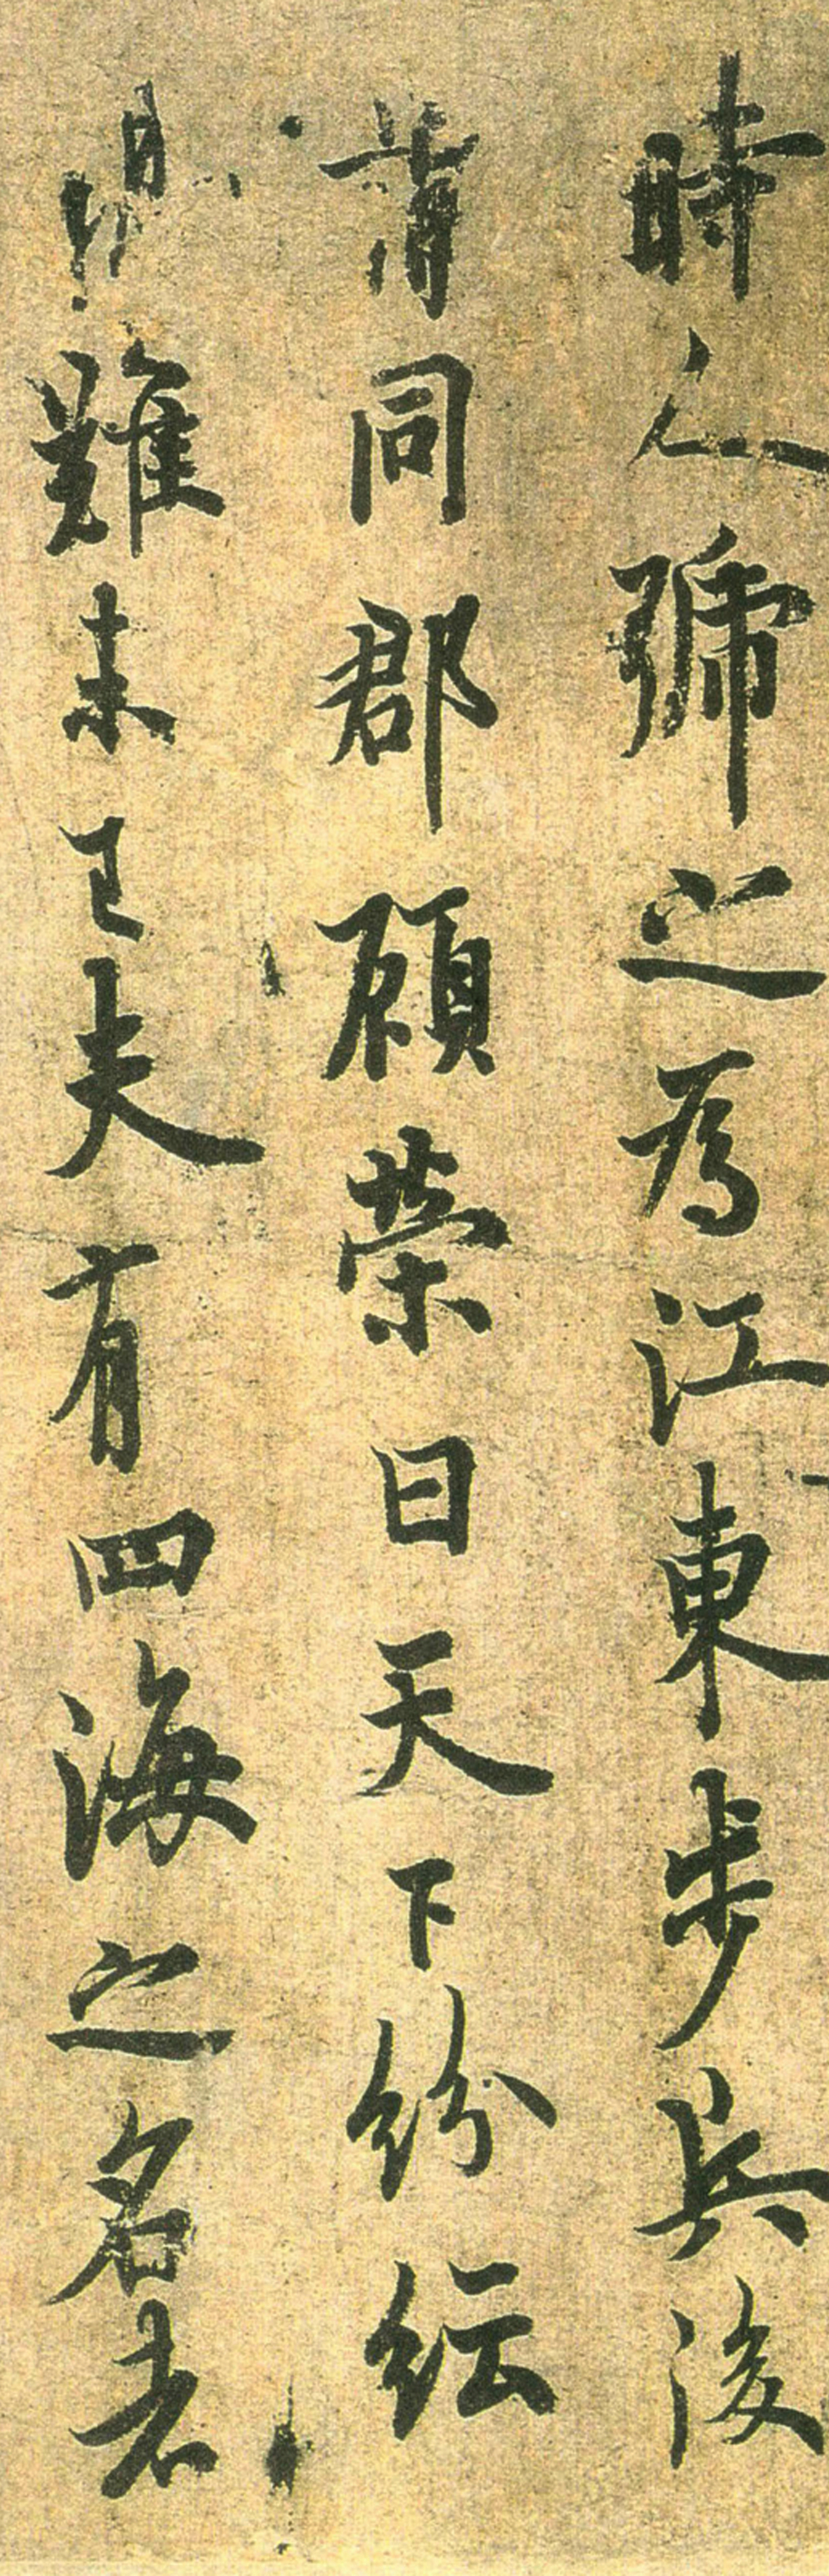 時人號之為江東步兵後
同郡顧榮曰天下紛紜
難未已夫有四海之名者